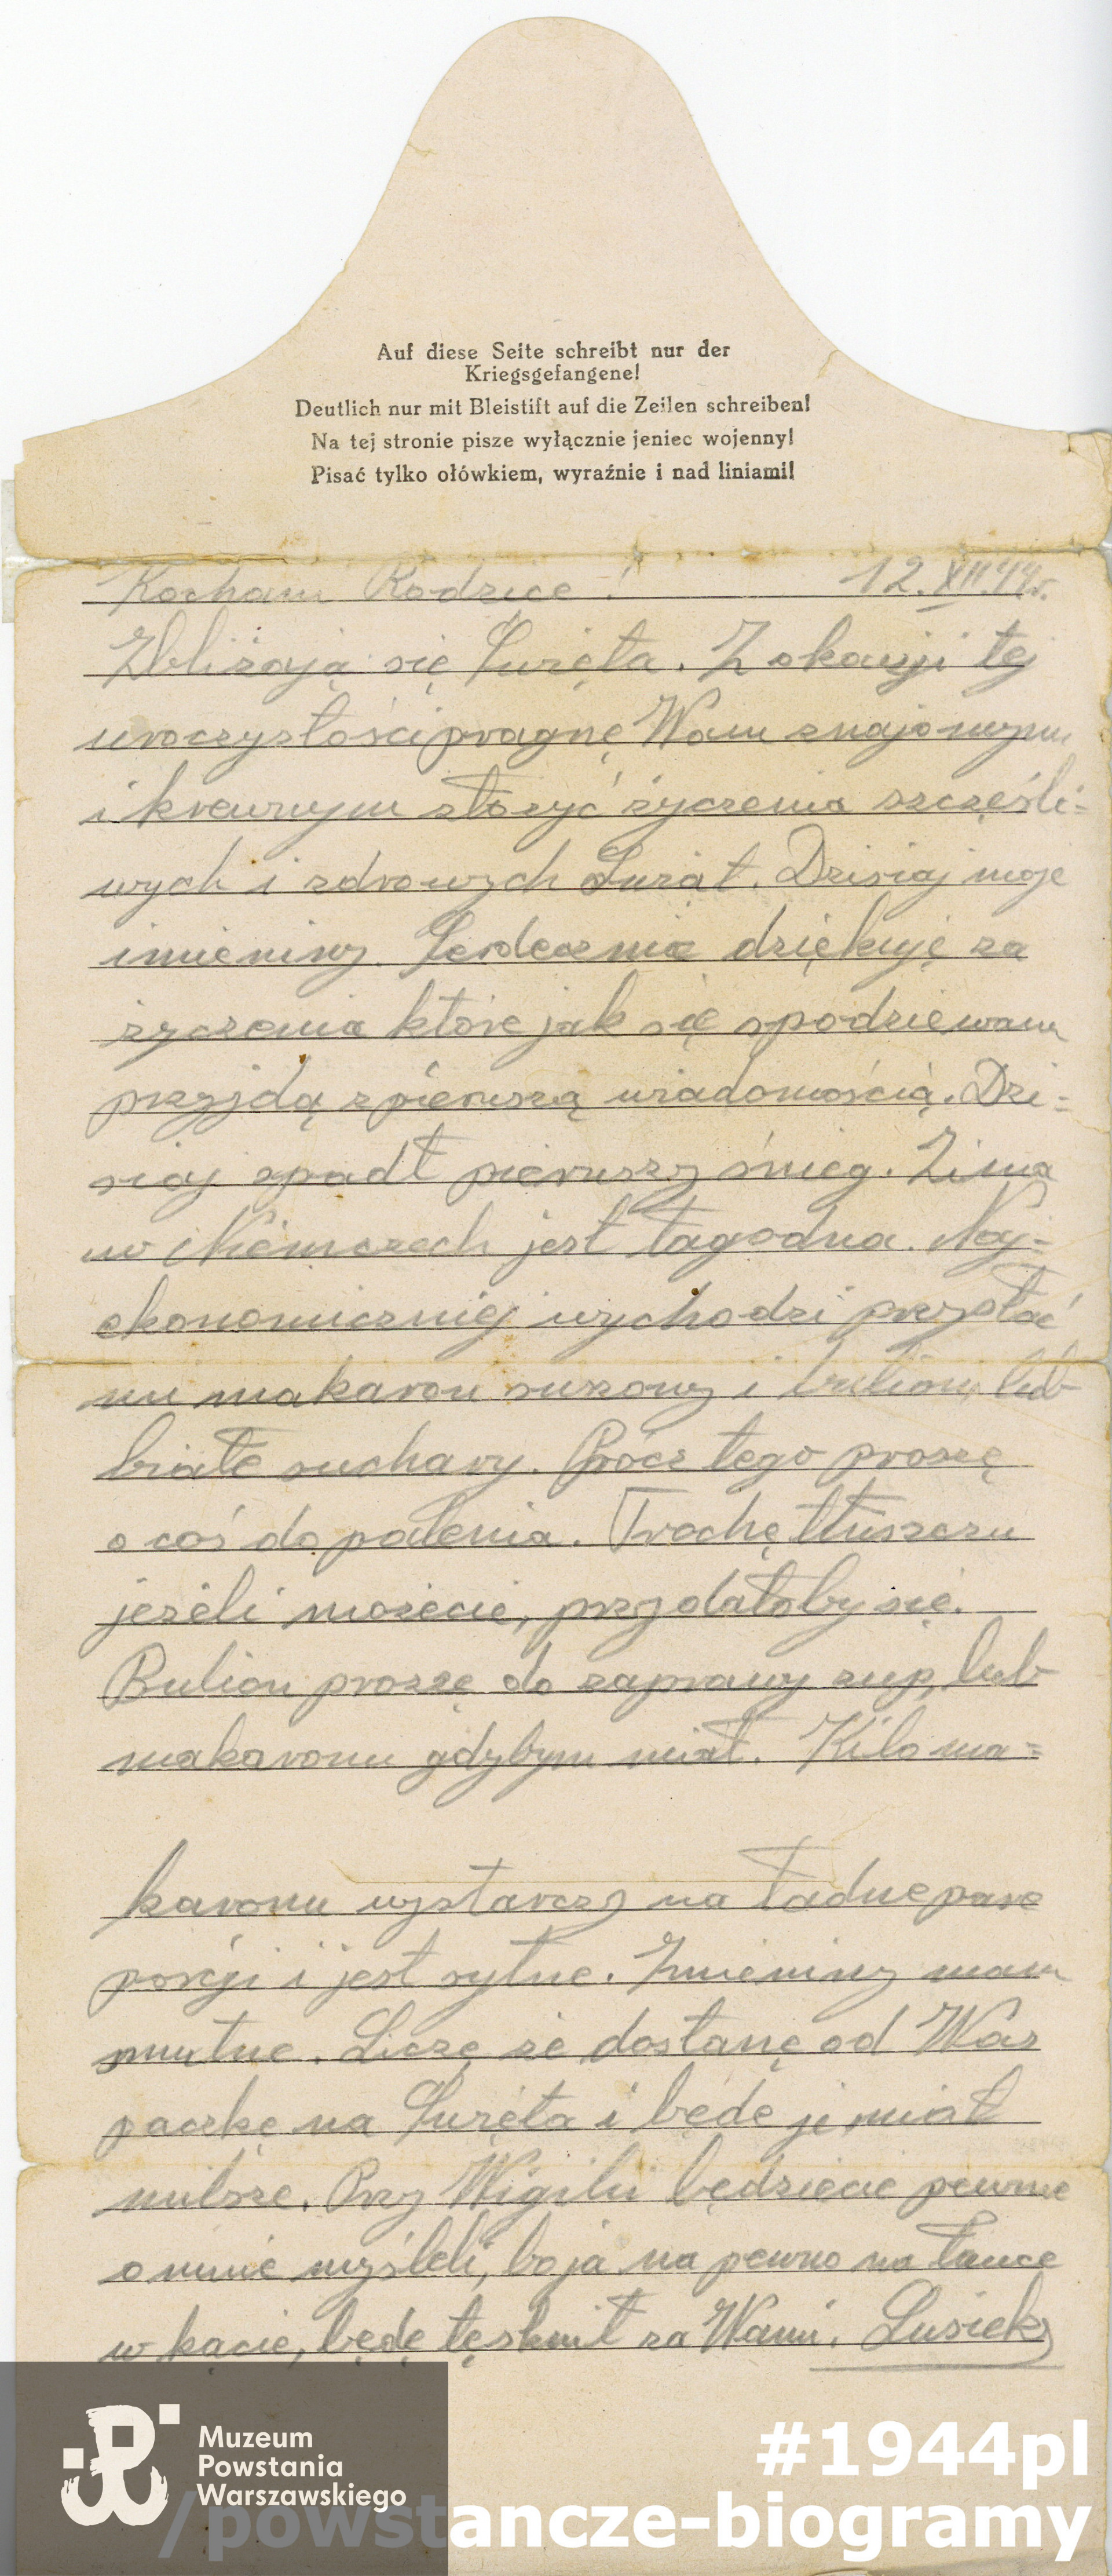 Auf diese Seite schreibt nur der
Kriegsgefangene!
Deutlich nur mit Bleistift auf die Zeilen schreiben!
Na tej stronie pisze wyłącznie jeniec wojenny!
Pisać tylko ołówkiem, wyraźnie i nad liniami!
Kochani Rodzice! 12.XII.44r.
Zbliżają się Święta. Z okazji tej
uroczystości pragnę Wam znajomym
i krewnym złożyć życzenia szczęśli=
wych i zdrowych Świąt. Dzisiaj moje
imieniny. Serdecznie dziękuję za
życzenia które jak się spodziewam
przyjdą z pierwszą wiadomością. Dzi=
siaj spadł pierwszy śnieg. Zima
w Niemczech jest łagodna. Naj=
ekonomiczniej wychodzi przysłać
mi makaron suszony i bulion, lub
białe suchary. Prócz tego proszę
o coś do palenia. Trochę tłuszczu
jeżeli możecie, przydałoby się.
Bulion proszę do zaprawy zup, lub
makaronu gdybym miał. Kilo ma=
karonu wystarczy na ładne parę
porcji i jest sytne. Imieniny mam
smutne. Liczę że dostanę od Was
paczkę na Święta i będę je miał
milsze. Przy Wigilii będziecie pewnie
o mnie myśleli, bo ja na pewno na
w kącie, będę tęsknił za Wami. Lusiek
Muzeum
Powstania
Warszawskiego
#1944pl
/powstancze-biogramy